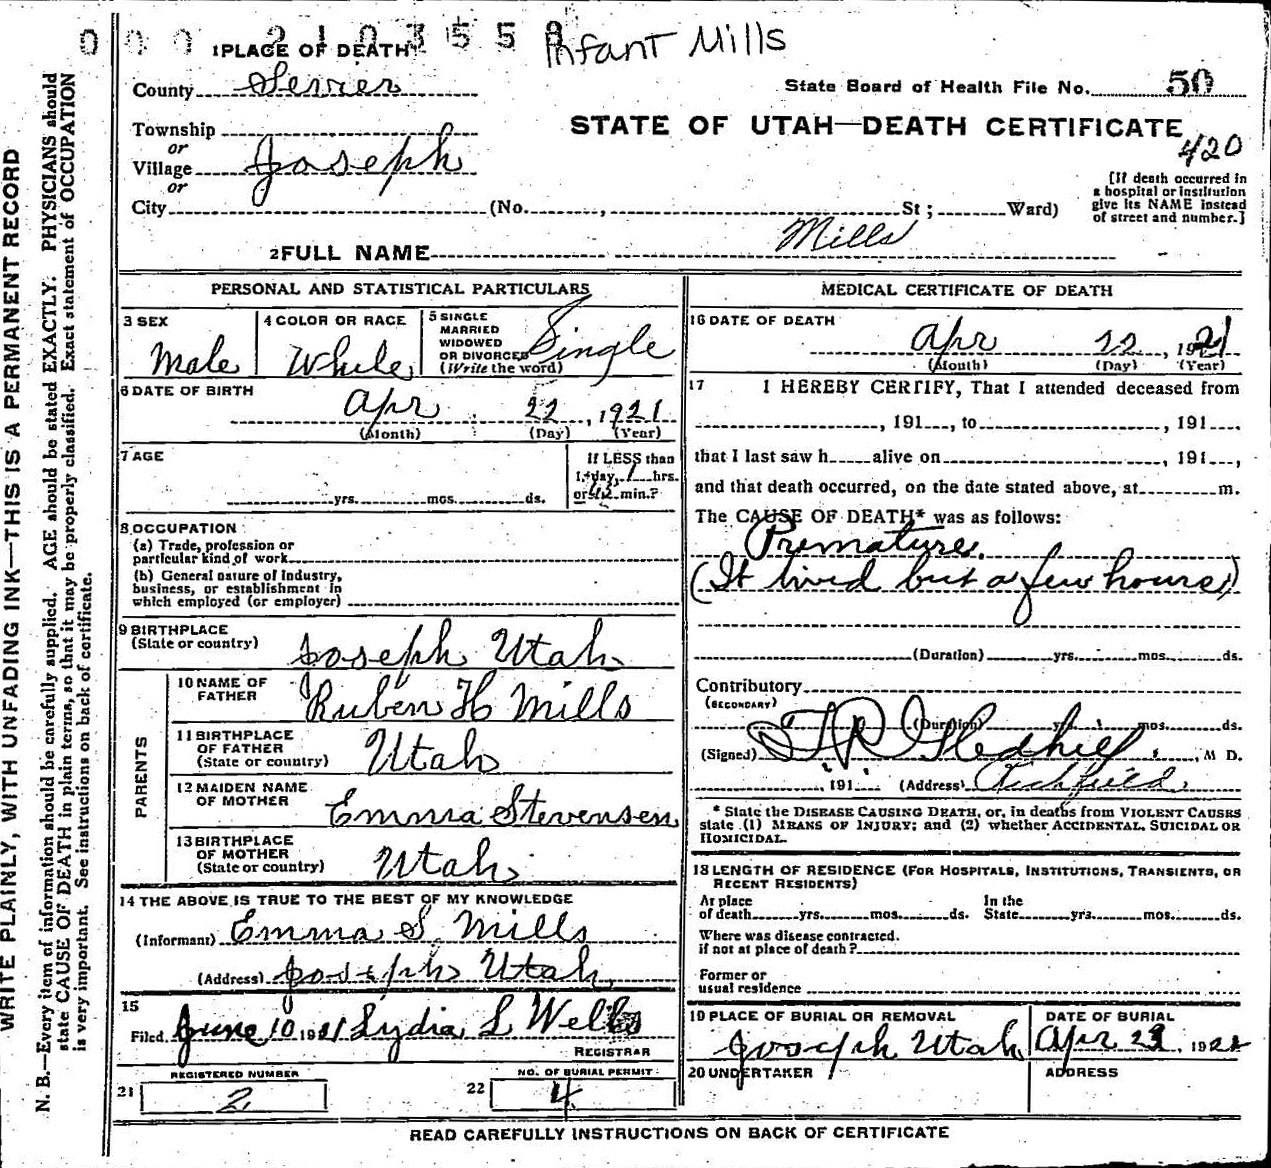 0 0 0 2 1 0 3 5 5 8
Infant Mills
1 PLACE OF DEATH
County Sevier
State Board of Health File No. 50
STATE OF UTAH—DEATH CERTIFICATE
420
Township
or
Village Joseph
or
City (No. , St ; Ward)
[If death occurred in
a hospital or institution
give its NAME instead
of street and number.]
2 FULL NAME Mills
PERSONAL AND STATISTICAL PARTICULARS
3 SEX
Male
4 COLOR OR RACE
White
5 SINGLE
MARRIED
WIDOWED
OR DIVORCED
(Write the word)
Single
6 DATE OF BIRTH
Apr 22, 1921
(Month) (Day) (Year)
7 AGE
yrs. mos. ds.
If LESS than
1 day, 1 hrs.
or min.?
8 OCCUPATION
(a) Trade, profession or
particular kind of work
(b) General nature of industry,
business, or establishment in
which employed (or employer)
9 BIRTHPLACE
(State or country) Joseph Utah
PARENTS
10 NAME OF
FATHER Ruben H Mills
11 BIRTHPLACE
OF FATHER
(State or country) Utah
12 MAIDEN NAME
OF MOTHER Emma Stevensen
13 BIRTHPLACE
OF MOTHER
(State or country) Utah
14 THE ABOVE IS TRUE TO THE BEST OF MY KNOWLEDGE
(Informant) Emma S. Mills
(Address) Joseph Utah
15
Filed June 10 1921 Lydia L Wells
REGISTRAR
REGISTERED NUMBER
21 2
NO. OF BURIAL PERMIT
22 4
MEDICAL CERTIFICATE OF DEATH
16 DATE OF DEATH
Apr 22, 1921
(Month) (Day) (Year)
17 I HEREBY CERTIFY, That I attended deceased from
, 191 , to , 191 ,
that I last saw h alive on , 191 ,
and that death occurred, on the date stated above, at m.
The CAUSE OF DEATH* was as follows:
Premature.
(It lived but a few hours)
(Duration) yrs. mos. ds.
Contributory
(SECONDARY)
(Duration) yrs. mos. ds.
(Signed) T R Gledhill, M D.
, 191 (Address) Richfield
* State the DISEASE CAUSING DEATH, or, in deaths from VIOLENT CAUSES
state (1) MEANS OF INJURY; and (2) whether ACCIDENTAL, SUICIDAL OR
HOMICIDAL.
18 LENGTH OF RESIDENCE (FOR HOSPITALS, INSTITUTIONS, TRANSIENTS, OR
RECENT RESIDENTS)
At place
of death yrs. mos. ds.
In the
State yrs. mos. ds.
Where was disease contracted.
if not at place of death?
Former or
usual residence
19 PLACE OF BURIAL OR REMOVAL
Joseph Utah
DATE OF BURIAL
Apr 23, 1921
20 UNDERTAKER
ADDRESS
READ CAREFULLY INSTRUCTIONS ON BACK OF CERTIFICATE
WRITE PLAINLY, WITH UNFADING INK—THIS IS A PERMANENT RECORD
N. B.—Every item of information should be carefully supplied. AGE should be stated EXACTLY. PHYSICIANS should
state CAUSE OF DEATH in plain terms, so that it may be properly classified. Exact statement of OCCUPATION
is very important. See instructions on back of certificate.